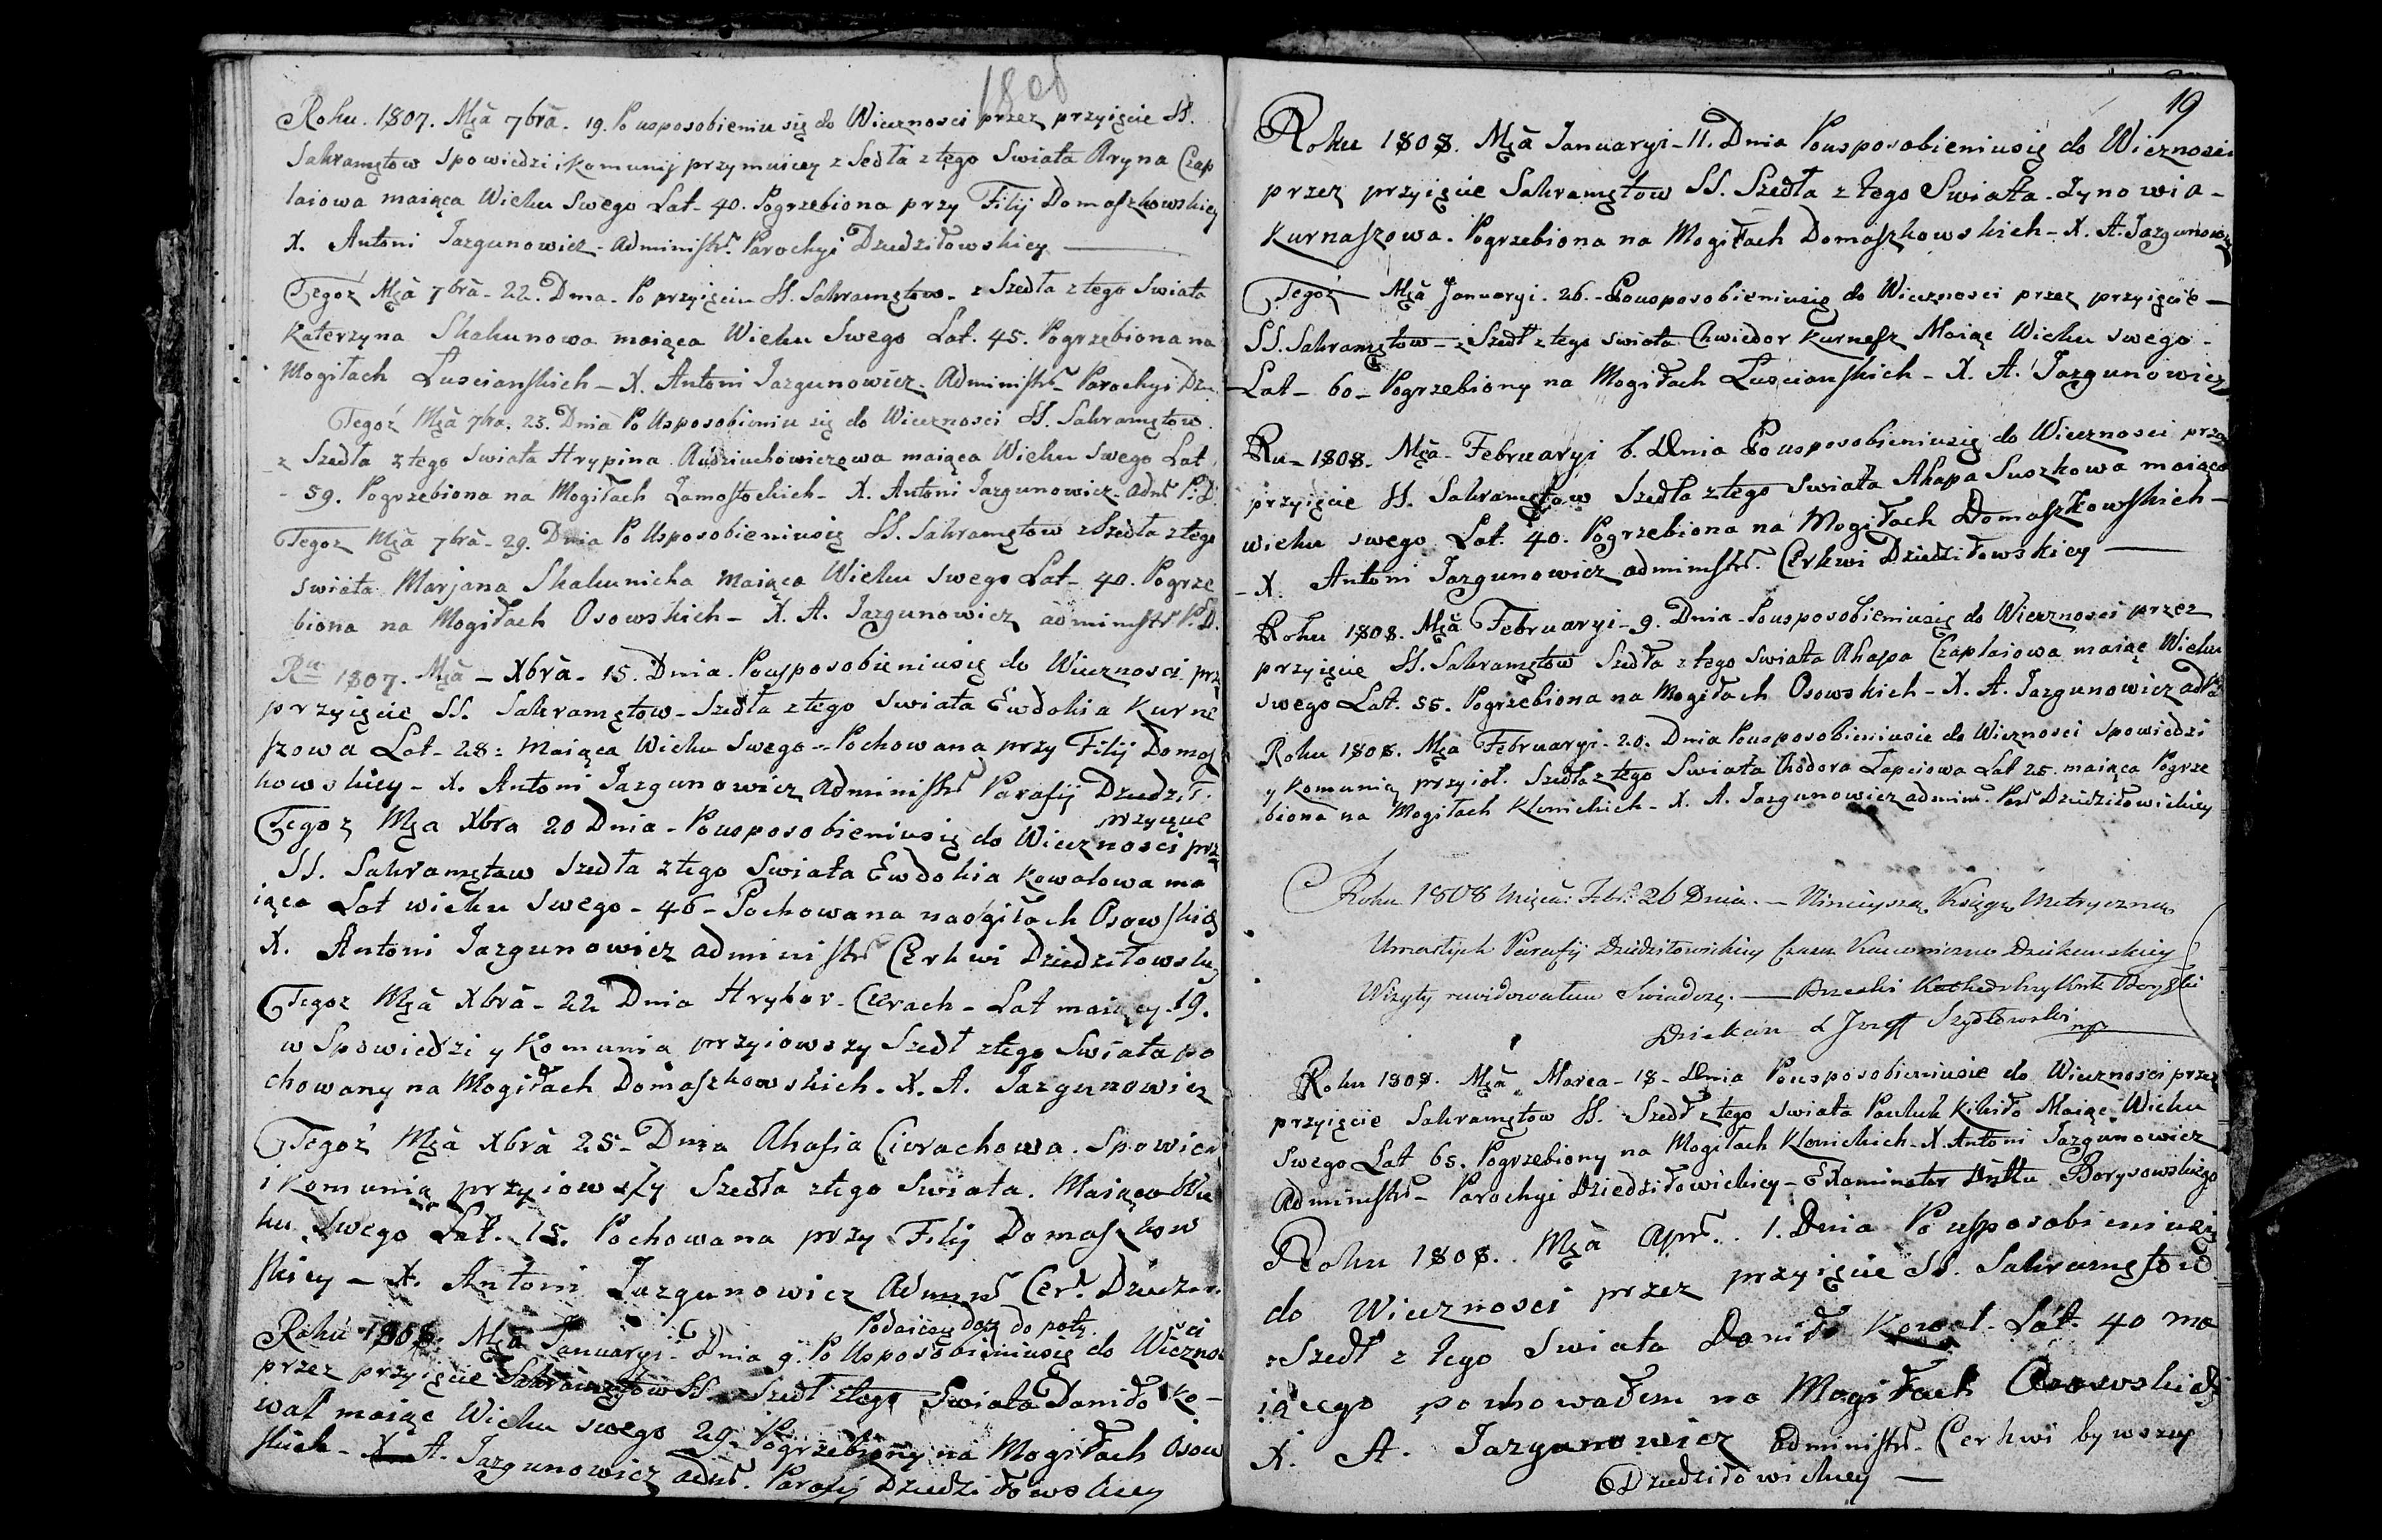 1808
Roku. 1807. Mcà 7brà. 19. Po usposobieniu się do Wieczności przez przyięcie SS.
Sakramętow Spowiedzi i Komunij przymuicey z Sedła z tego Swiata Aryna Czap
laiowa maiąca Wieku Swego Lat - 40. Pogrzebiona przy Filij Domaszkowskiey
X. Antoni Jazgunowicz - Administr. Parochyi Dziedziłowskiey
Tegoż Mcà 7brà - 22. Dnia - Po przyięciu SS. Sakramętow - z Szedła z tego Swiata
Katerzyna Skakunowa maiąca Wieku Swego Lat. 45. Pogrzebiona na
Mogiłach Łuscianskich - X. Antoni Jazgunowicz - Administr - Parochyi Dzi.
Tegoż Mcà 7bra. 23. Dnia Po Usposobieniu się do Wieczności SS. Sakramętow
z Szedła z tego Swiata Hrypina Audziuchowiczowa maiąca Wieku Swego Lat
- 59. Pogrzebiona na Mogiłach Zamostockich - X. Antoni Jazgunowicz - Adm. P. D.
Tegoz Mcà 7brà - 29. Dnia Po Usposobieniusię SS. Sakramętow z Szedła z tego
Swiata Marjana Skakunicha maiąca Wieku Swego Lat - 40. Pogrze
biona na Mogiłach Osowskich - X. A. Jazgunowicz administr P. D.
Ru 1807. Mcà - Xbrà - 15. Dnia. Pousposobieniusię do Wieczności prz
przyięcie SS. Sakramętow - Szedła z tego Swiata Ewdokia Kurne
szowa Lat - 28: maiąca Wieku Swego - Pochowana przy Filij Domasz
kowskiey - X. Antoni Jazgunowicz Administr Parafij Dziedził.
Tegoz Mca Xbra 20 Dnia - Pousposobieniusię do Wieczności prze
przyięcie
SS. Sakramętow Szedła z tego Swiata Ewdokia Kowalowa ma
iąca Lat wieku Swego - 46 - Pochowana na ogiłach Osowskich
X. Antoni Jazgunowicz administr Cerkwi Dziedziłowskiey
Tegoż Mcà Xbrà - 22 Dnia Hryhor - Cierach - Lat maiący 19.
w Spowiedzi y Komunia przyiowszy Szedł z tego Swiata po
chowany na Mogiłach Domaszkowskich. X. A. Jazgunowicz
Tegoż Mcà Xbrà 25 - Dnia Ahafia Cierachowa. Spowied
i Komunią przyiowszy Szedła z tego Swiata. Maiąca Wie
ku Swego Lat. 15. Pochowana przy Filij Domaszkow
skiey - X. Antoni Jazgunowicz Admini Cer. Dziedz.
Roku 1808. Mcà Januaryi - Dnia 9. Po Usposobieniusię do Wieczności
przez przyięcie Sakramętow SS. Szedł z tego Swiata Daniło Ko-
wal maiąc Wieku swego 29. Pogrzebiony na Mogiłach Osow
skich - X. A. Jazgunowicz adm. Parafij Dziedziłowskiey
19
Roku 1808. Mcà Januaryi - 11. Dnia Pousposobieniusię do Wieczności
przez przyięcie Sakramętow SS. Szedła z tego Swiata - Zynowia -
Kurnaszowa. Pogrzebiona na Mogiłach Domaszkowskich - X. A. Jazgunowicz
Tegoż Mcà Januaryi - 26. - Pousposobieniusię do Wieczności przez przyięcie -
SS. Sakramętow - z Szedł z tego swiata Chwiedor Kurnesz Maiąc Wieku swego -
Lat - 60 - Pogrzebiony na Mogiłach Łuscianskich - X. A. Jazgunowicz
Ru - 1808. Mcà - Februaryi 6. Dnia Pousposobieniusię do Wieczności przez
przyięcie SS. Sakramętow Szedła z tego Swiata Ahapa Suszkowa maiąca
wieku swego Lat. 40. Pogrzebiona na Mogiłach Domaszkowskich -
- X. Antoni Jazgunowicz administr. Cerkwi Dziedziłowskiey
Roku 1808. Mcà Februaryi - 9. Dnia - Pousposobieniusię do Wieczności przez
przyięcie SS. Sakramętow Szedła z tego Swiata Ahapa Czaplaiowa maiąc Wieku
swego Lat. 55. Pogrzebiona na Mogiłach Osowskich - X. A. Jazgunowicz
Roku 1808. Mca Februaryi - 20. Dnia Pousposobieniusie do Wieczności Spowiedzi
y Komunią przyioł. Szedła z tego Swiata Chodora Łapciowa Lat 25. maiąca Pogrze
biona na Mogiłach Klonickich - X. A. Jazgunowicz admin. Par Dziedziłowickiey
Roku 1808 Miesca: Febr. 26 Dnia. - Ninieyszą Księgę Metryczną
Umarłych Parafij Dziedziłowickiey Czasu Dziekanskiey
Wizyty rewidowałem Swiadczę. - Brzeski Kathedralny
Dziekan X Jozeff Szydłowski mp
Roku 1808. Mcà Marca - 18 - Dnia Pousposobieniusie do Wieczności przez
przyięcie Sakramętow SS. Szedł z tego Swiata Pauluk Kikiło Maiąc Wieku
Swego Lat 65. Pogrzebiony na Mogiłach Klonickich - X. Antoni Jazgunowicz
Administr - Parochyi Dziedziłowickiey - Examinator Borysowskiego
Roku 1808. Mcà Apri. 1. Dnia Po usposobieniusię
do Wieczności przez przyięcie SS. Sakramętow
z Szedł z tego Swiata Daniło Kowal - Lat - 40 ma
iącego pochowałem na Mogiłach Osowskich
X. A. Jazgunowicz administr - Cerkwi bywszey
Dziedziłowickiey -